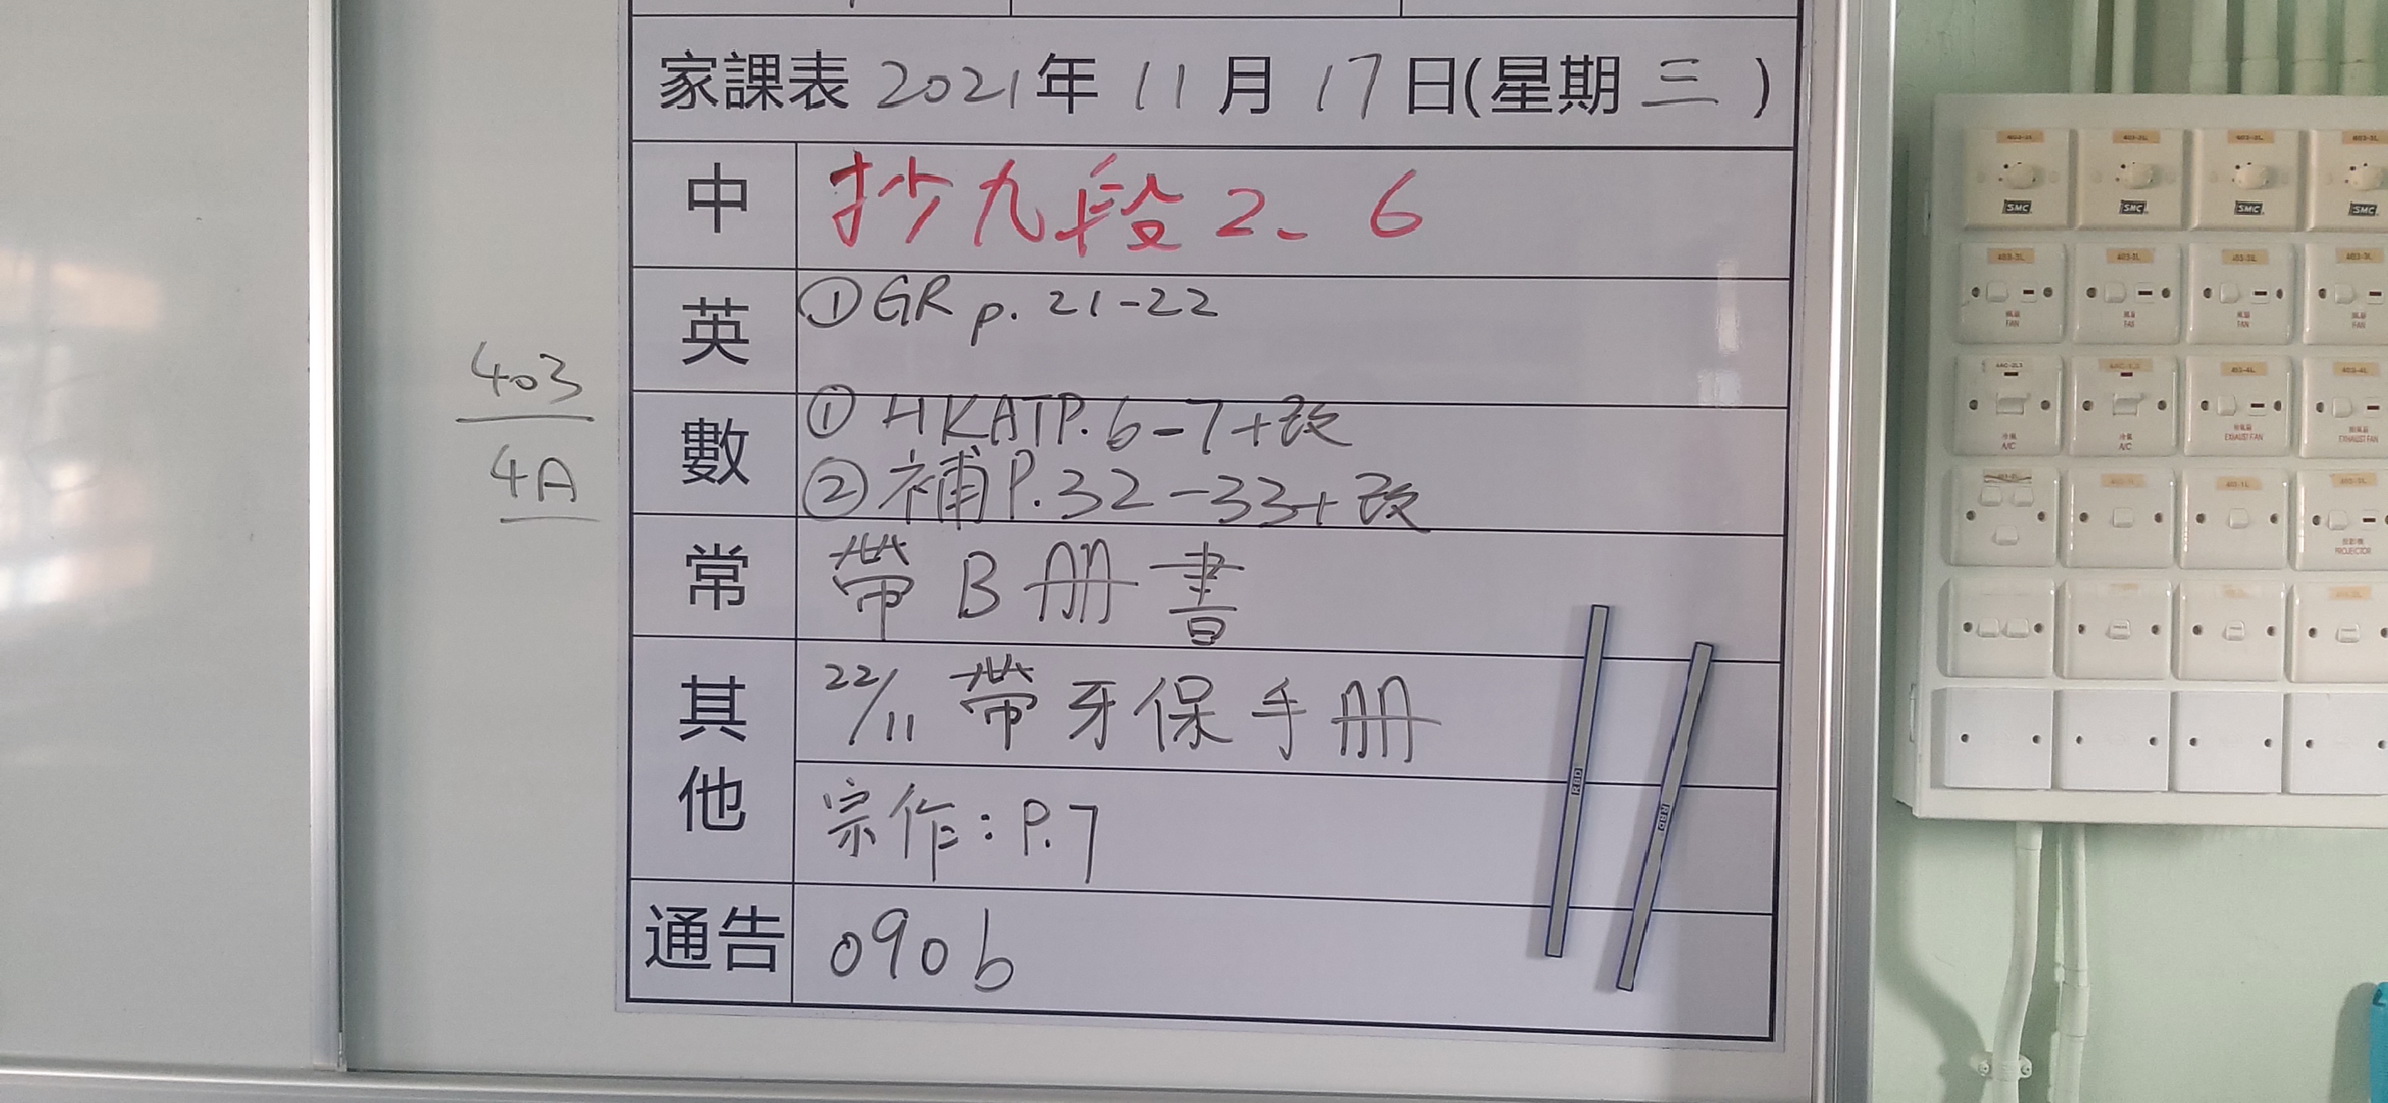 家課表 2021年 11月 17日(星期三)
中 抄九段2、6
英 ①GR p. 21-22
數 ① HKATP.6-7+改
②補P.32-33+改
常 帶B冊書
其他 22/11 帶牙保手冊
宗作:P.7
通告 090b
403
4A
SMC
SMC
SMC
SMC
風扇
FAN
風扇
FAN
風扇
FAN
風扇
FAN
冷氣
A/C
冷氣
A/C
EXHAUST FAN
EXHAUST FAN
PROJECTOR
RBD
RBD